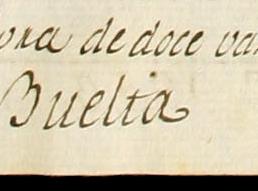 ora de doce va
Buelta